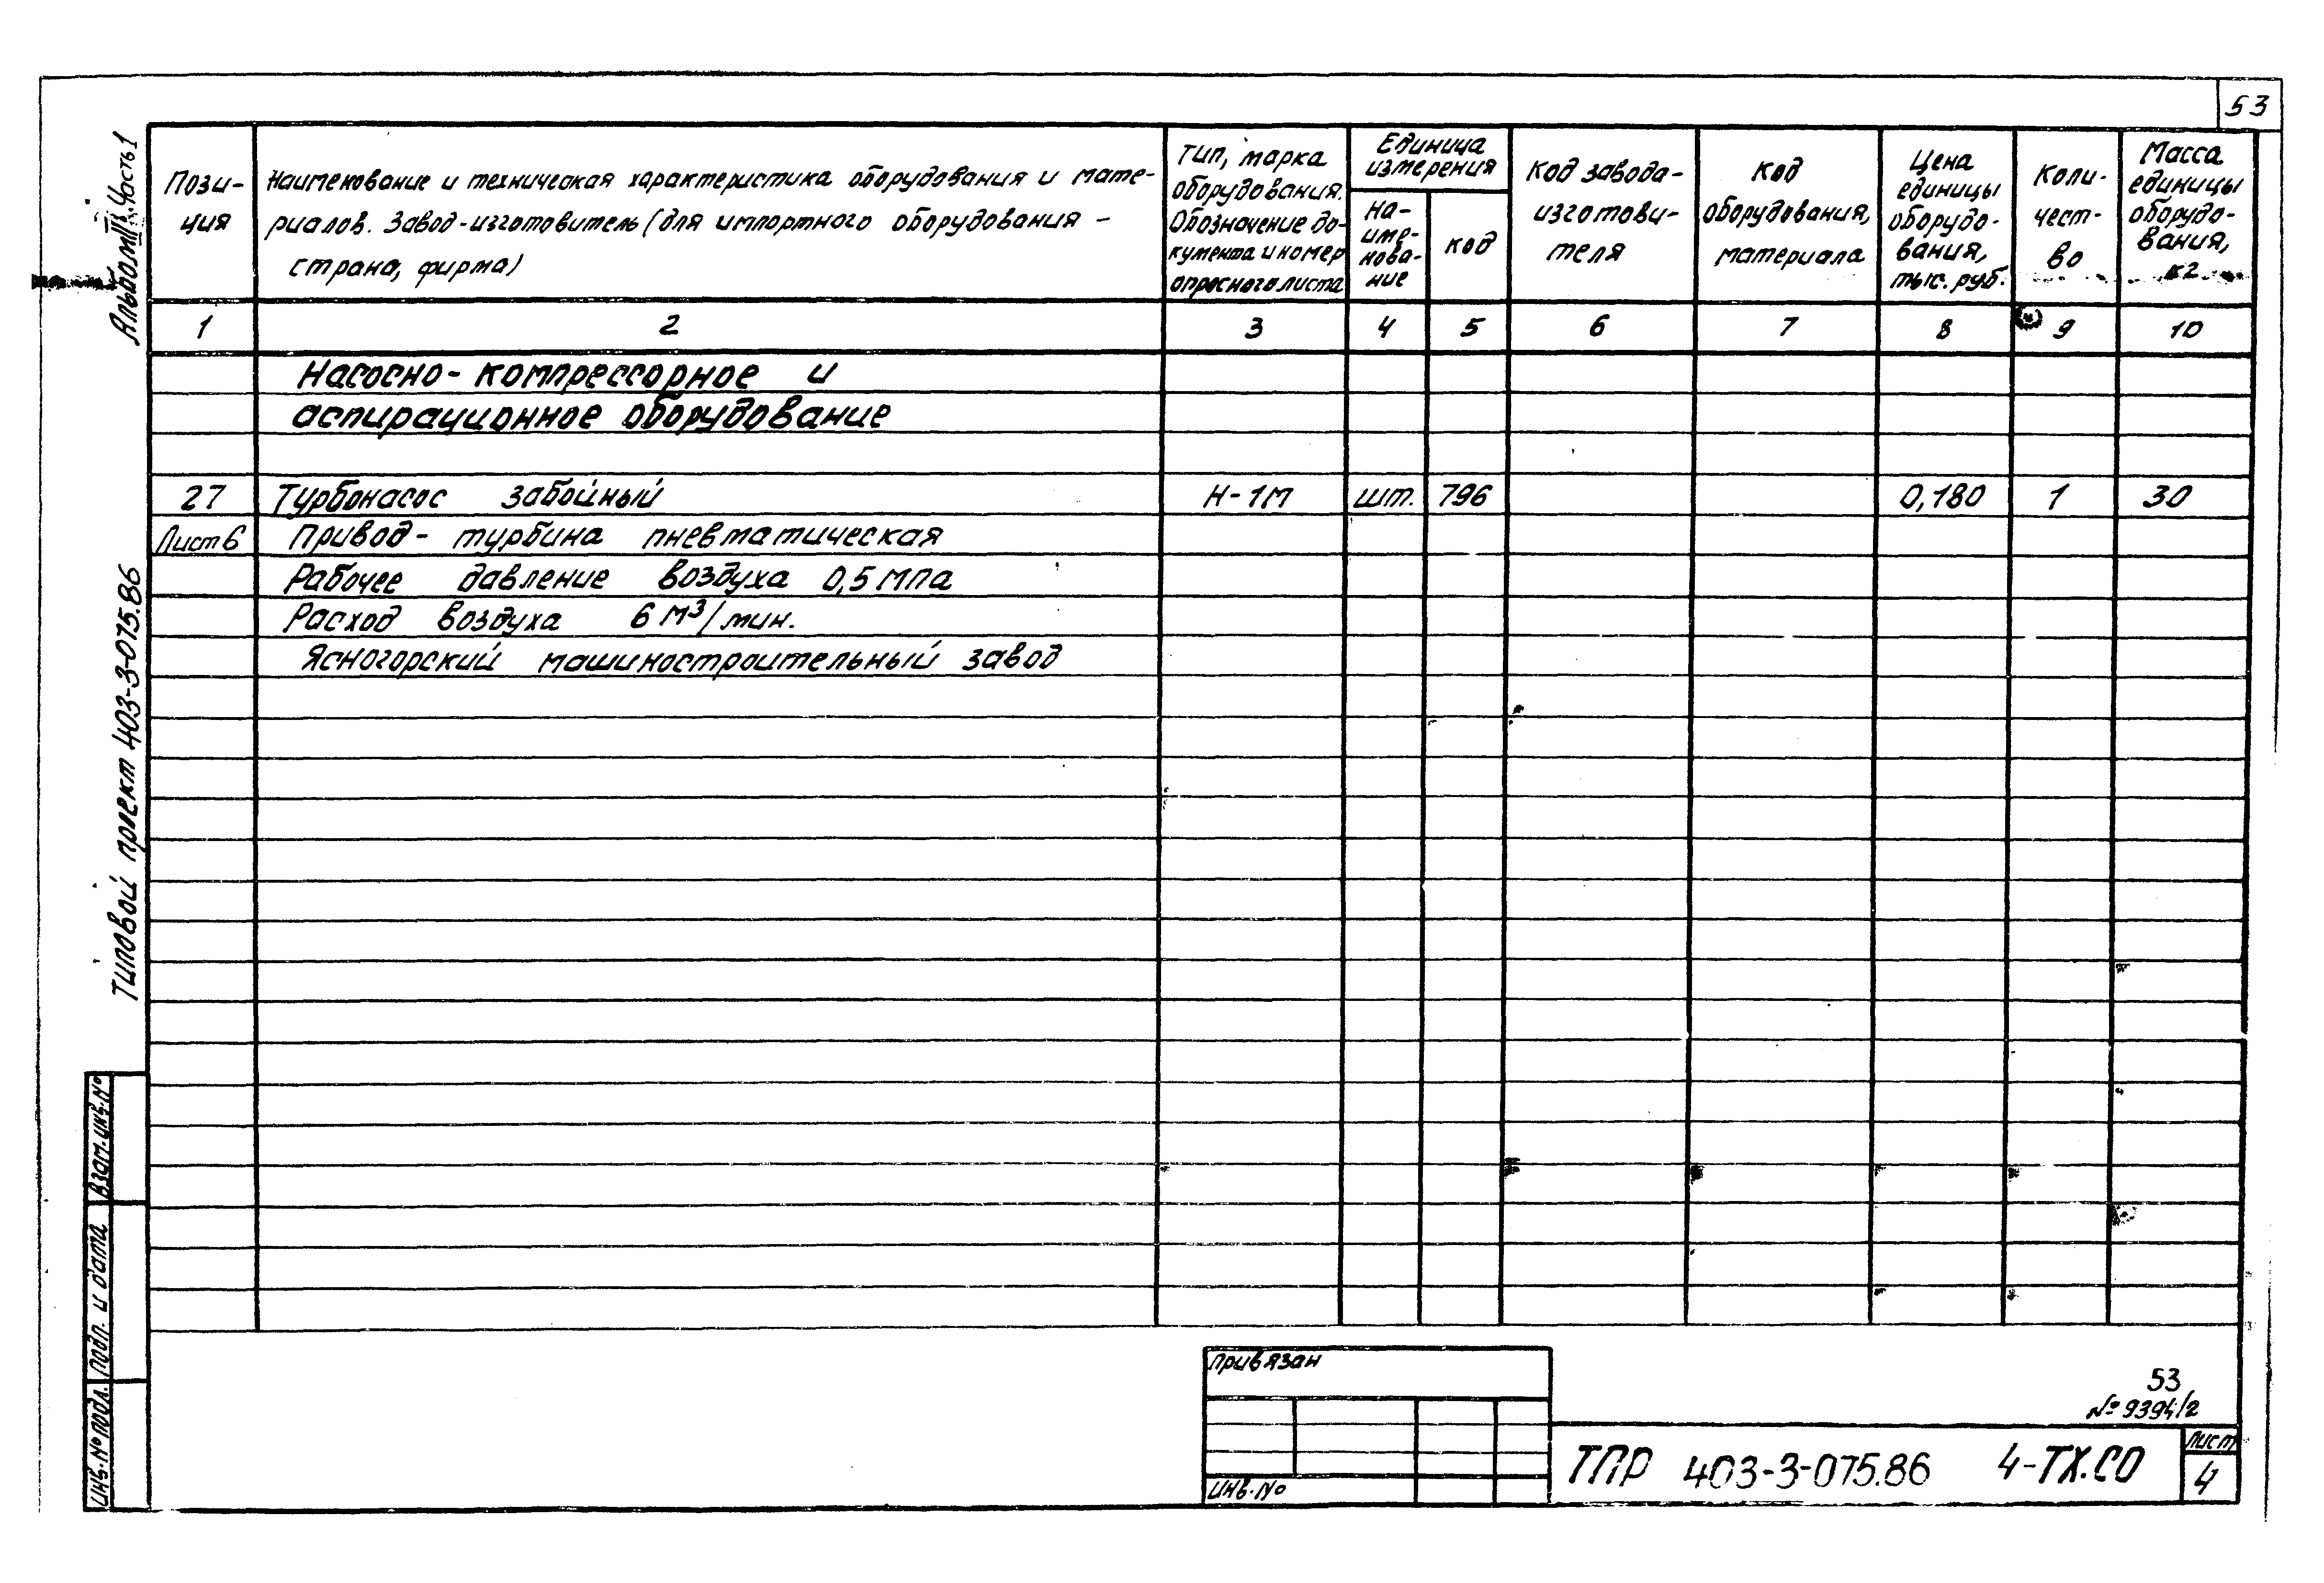 53
Альбом III. Часть 1
Типовой проект 403-3-075.86
Пози-
ция
Наименование и техническая характеристика оборудования и мате-
риалов. Завод-изготовитель (для импортного оборудования -
страна, фирма)
Тип, марка
оборудования.
Обозначение до-
кумента и номер
опросного листа
Единица
измерения
На-
име-
нова-
ние
код
Код завода-
изготови-
теля
Код
оборудования,
материала
Цена
единицы
оборудо-
вания,
тыс. руб.
Коли-
чест-
во
Масса
единицы
оборудо-
вания,
кг
1 2 3 4 5 6 7 8 9 10
Насосно-компрессорное и
аспирационное оборудование
27 Турбонасос забойный Н-1М шт. 796 0,180 1 30
Лист 6 Привод- турбина пневматическая
Рабочее давление воздуха 0,5 МПа
Расход воздуха 6 м³/мин.
Ясногорский машиностроительный завод
Взам. инв. №
Подп. и дата
Инв. № подл.
Привязан
Инв. №
53
№ 9394/2
ТПР 403-3-075.86 4-ТХ.СО
Лист
4